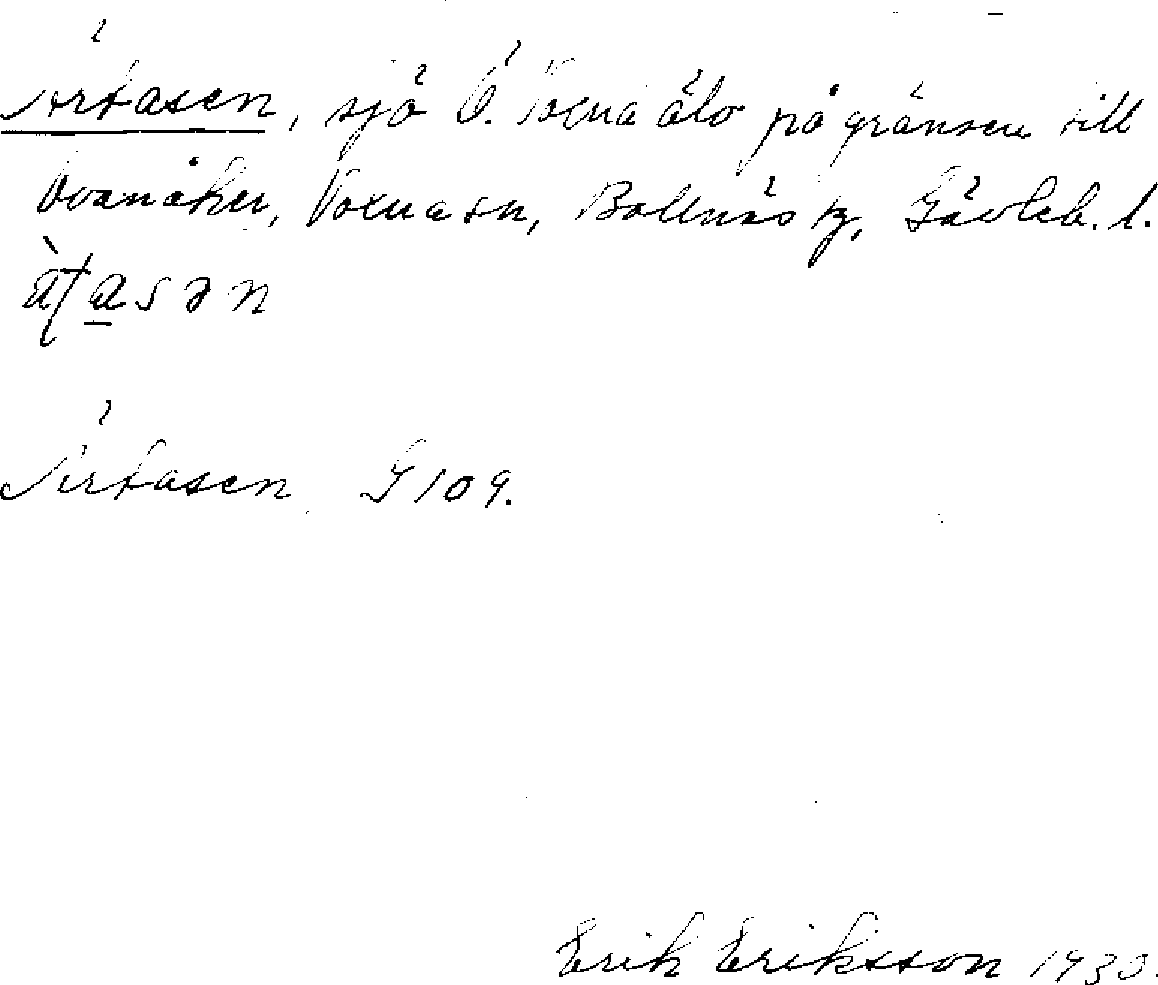 Ärtasen, sjö Ö. Voxna älv på gränsen till
Ovanåker, Voxna sn, Bollnäs tg, Gävleb. l.
Ärtasen G 109.
Erik Eriksson 1930.